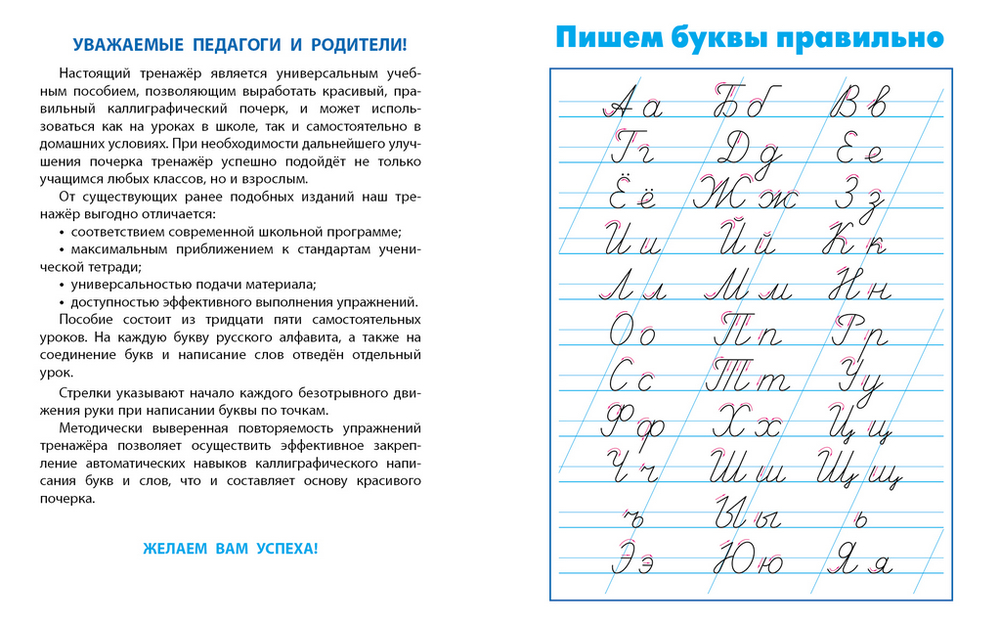 УВАЖАЕМЫЕ ПЕДАГОГИ И РОДИТЕЛИ!
Настоящий тренажёр является универсальным учеб-
ным пособием, позволяющим выработать красивый, пра-
вильный каллиграфический почерк, и может исполь-
зоваться как на уроках в школе, так и самостоятельно в
домашних условиях. При необходимости дальнейшего улуч-
шения почерка тренажёр успешно подойдёт не только
учащимся любых классов, но и взрослым.
От существующих ранее подобных изданий наш тре-
нажёр выгодно отличается:
• соответствием современной школьной программе;
• максимальным приближением к стандартам учени-
ческой тетради;
• универсальностью подачи материала;
• доступностью эффективного выполнения упражнений.
Пособие состоит из тридцати пяти самостоятельных
уроков. На каждую букву русского алфавита, а также на
соединение букв и написание слов отведён отдельный
урок.
Стрелки указывают начало каждого безотрывного дви-
жения руки при написании буквы по точкам.
Методически выверенная повторяемость упражнений
тренажёра позволяет осуществить эффективное закреп-
ление автоматических навыков каллиграфического напи-
сания букв и слов, что и составляет основу красивого
почерка.
ЖЕЛАЕМ ВАМ УСПЕХА!
Пишем буквы правильно
А а Б б В в
Г г Д д Е е
Ё ё Ж ж З з
И и Й й К к
Л л М м Н н
О о П п Р р
С с Т т У у
Ф ф Х х Ц ц
Ч ч Ш ш Щ щ
ъ Ы ы ь
Э э Ю ю Я я